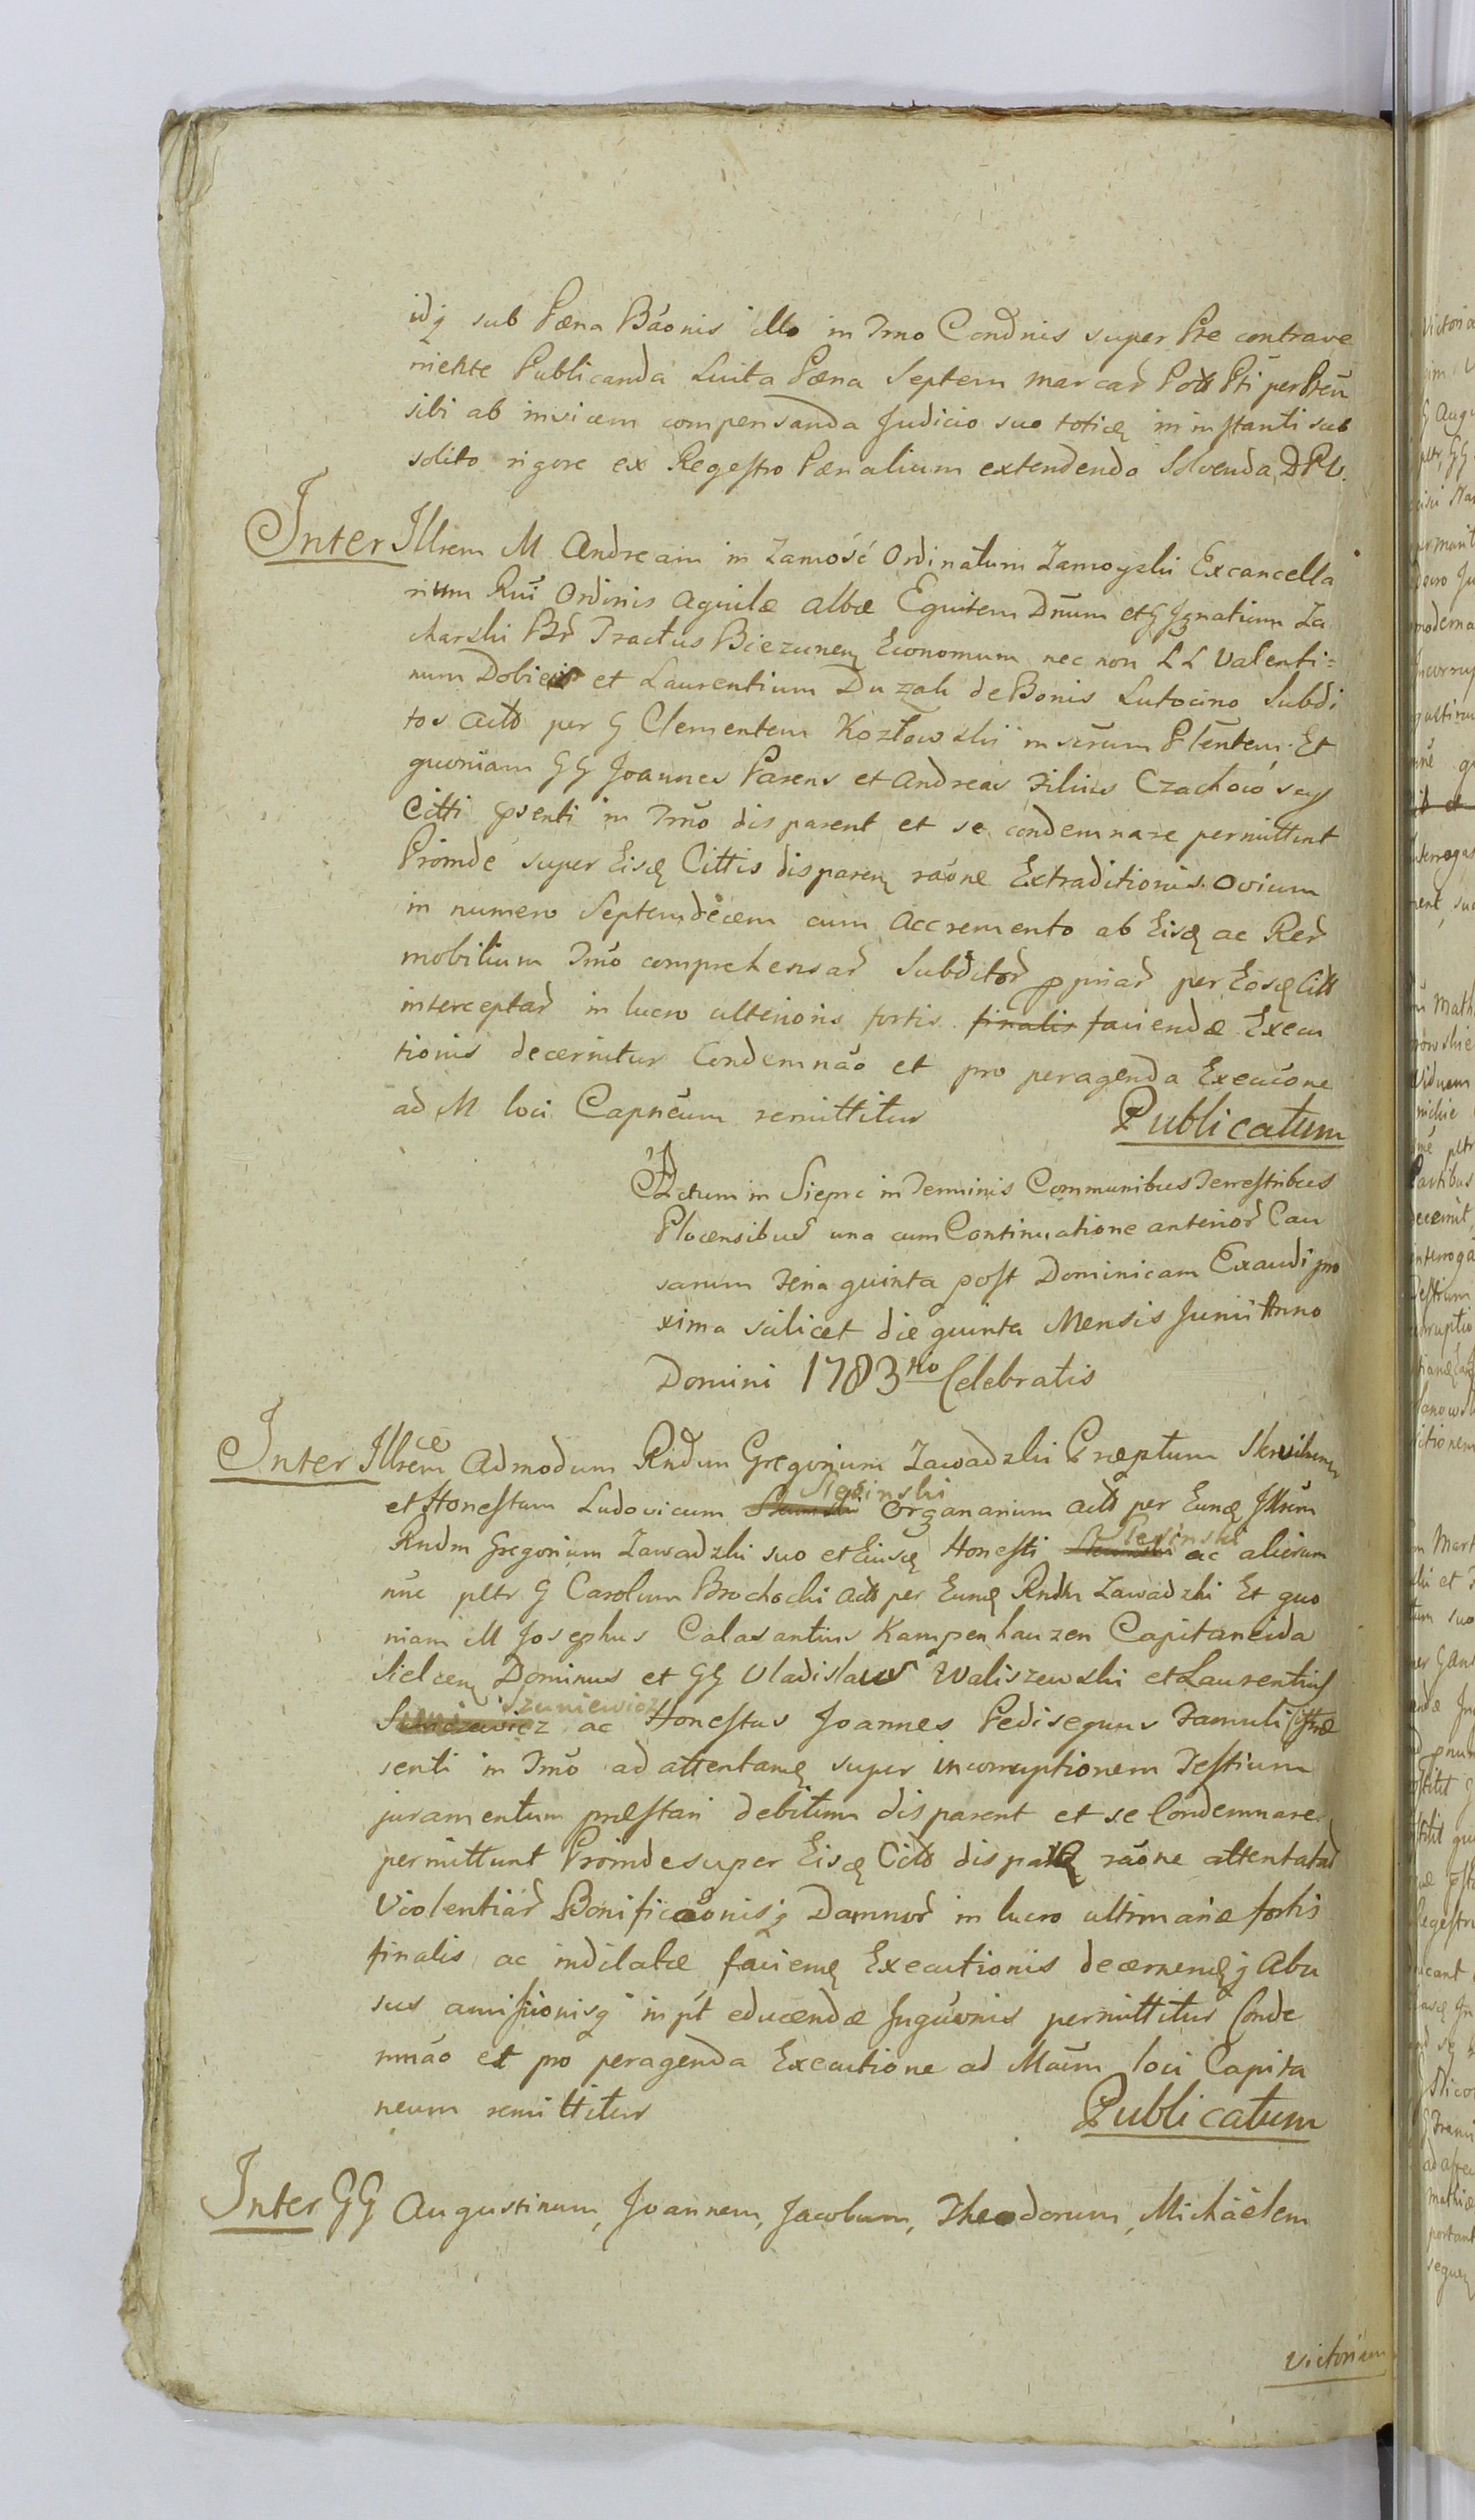 idq sub Pæna Báonis illo in Trno Condnis super Pte contrave
niente Publicanda Luita Pæna Septem marcar Pott Pti per Pten
sibi ab invicem compensanda Judicio suo toties in instanti sub
solito rigore ex Regestro Pænalium extendendo Solvenda DPV.
Inter Illrem M Andream in Zamość Ordinatum Zamoyski Excancella
rium Rni Ordinis Aquilæ albæ Equitem Dnum et G Ignatium Za
charski Br Tractus Biezunen Economum nec non LL Valenti=
num Dobies et Laurentium Duzak de Bonis Lutocino Subdi
tos Actt per G Clementem Kozłowski in scrum Pltentem. Et
quoniam GG Joannes Parens et Andreas Filius Czachowscy
Citti psenti in Trno disparent et se condemnare permittunt
Proinde super Eisd Cittis disparen raone Extraditionis Ovium
in numero Septemdecem cum Accremento ab Eisd ac Rer
mobilium Trno comprehensar Subditor ppriar per Eosd Citt
interceptar in lucro ulterioris fortis finalis faciendæ Execu
tionis decernitur Condemnáo et pro peragenda Execuone
ad M loci Capneum remittitur Publicatum
Actum in Sieprc in Terminis Communibus Terrestribus
Plocensibus una cum Continuatione anterior Cau
sarum Feria quinta post Dominicam Exaudi pro
xima scilicet die quinta Mensis Junii Anno
Domini 1783tio Celebratis
Inter Illrem Admodum Rndum Gregorium Zawadzki Præptum
et Honestum Ludovicum Sięcinski Organarium actt per Eund Illrem
Rndm Gregorium Zawadzki suo et Eiusd Honesti ac aliorum
nnc pltr G Carolum Brochocki Actt per Eund Rndm Zawadzki Et quo
niam M Josephus Calasantius Kampenhauzen Capitaneida
Sielcen Dominus et GG Vladislaus Waliszewski et Laurentius
Szuniewicz ac Honestus Joannes Pedisequus Famuli Citt præ
senti in Trno ad attentand super incorruptionem Testium
juramentum præstari debitum disparent et se Condemnare
permittunt Proinde super Eisd Citt disparen raone attentatar
Violentiar Bonificaonisq Damnor in lucro ultimariæ fortis
finalis ac indilatæ faciend Executionis decernendq Abu
sus amissionisq in pt educendæ Inquónis permittitur Conde
mnáo et pro peragenda Executione ad Mcum loci Capita
neum remittitur Publicatum
Inter GG Augustinum, Joannem, Jacobum, Theodorum, Michäelem
Victorium